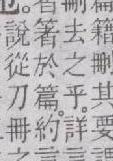 籍刪其要
刪去之乎。詳言
箸於篇。約言
也。說從刀冊